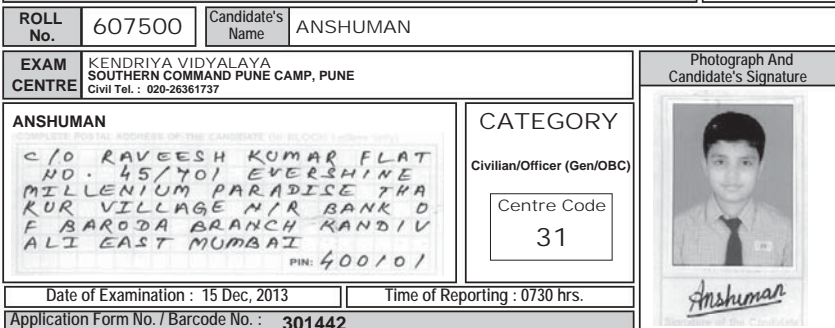 ROLL No. 607500 Candidate's Name ANSHUMAN
EXAM CENTRE KENDRIYA VIDYALAYA
SOUTHERN COMMAND PUNE CAMP, PUNE
Civil Tel. : 020-26361737
Photograph And
Candidate's Signature
ANSHUMAN
COMPLETE POSTAL ADDRESS OF THE CANDIDATE (IN BLOCK Letters only)
C/O RAVEESH KUMAR FLAT
NO. 45/701 EVERSHINE
MILLENIUM PARADISE THA
KUR VILLAGE N/R BANK O
F BARODA BRANCH KANDIV
ALI EAST MUMBAI
PIN: 400101
CATEGORY
Civilian/Officer (Gen/OBC)
Centre Code
31
Anshuman
Signature of the Candidate
Date of Examination : 15 Dec, 2013
Time of Reporting : 0730 hrs.
Application Form No. / Barcode No. : 301442